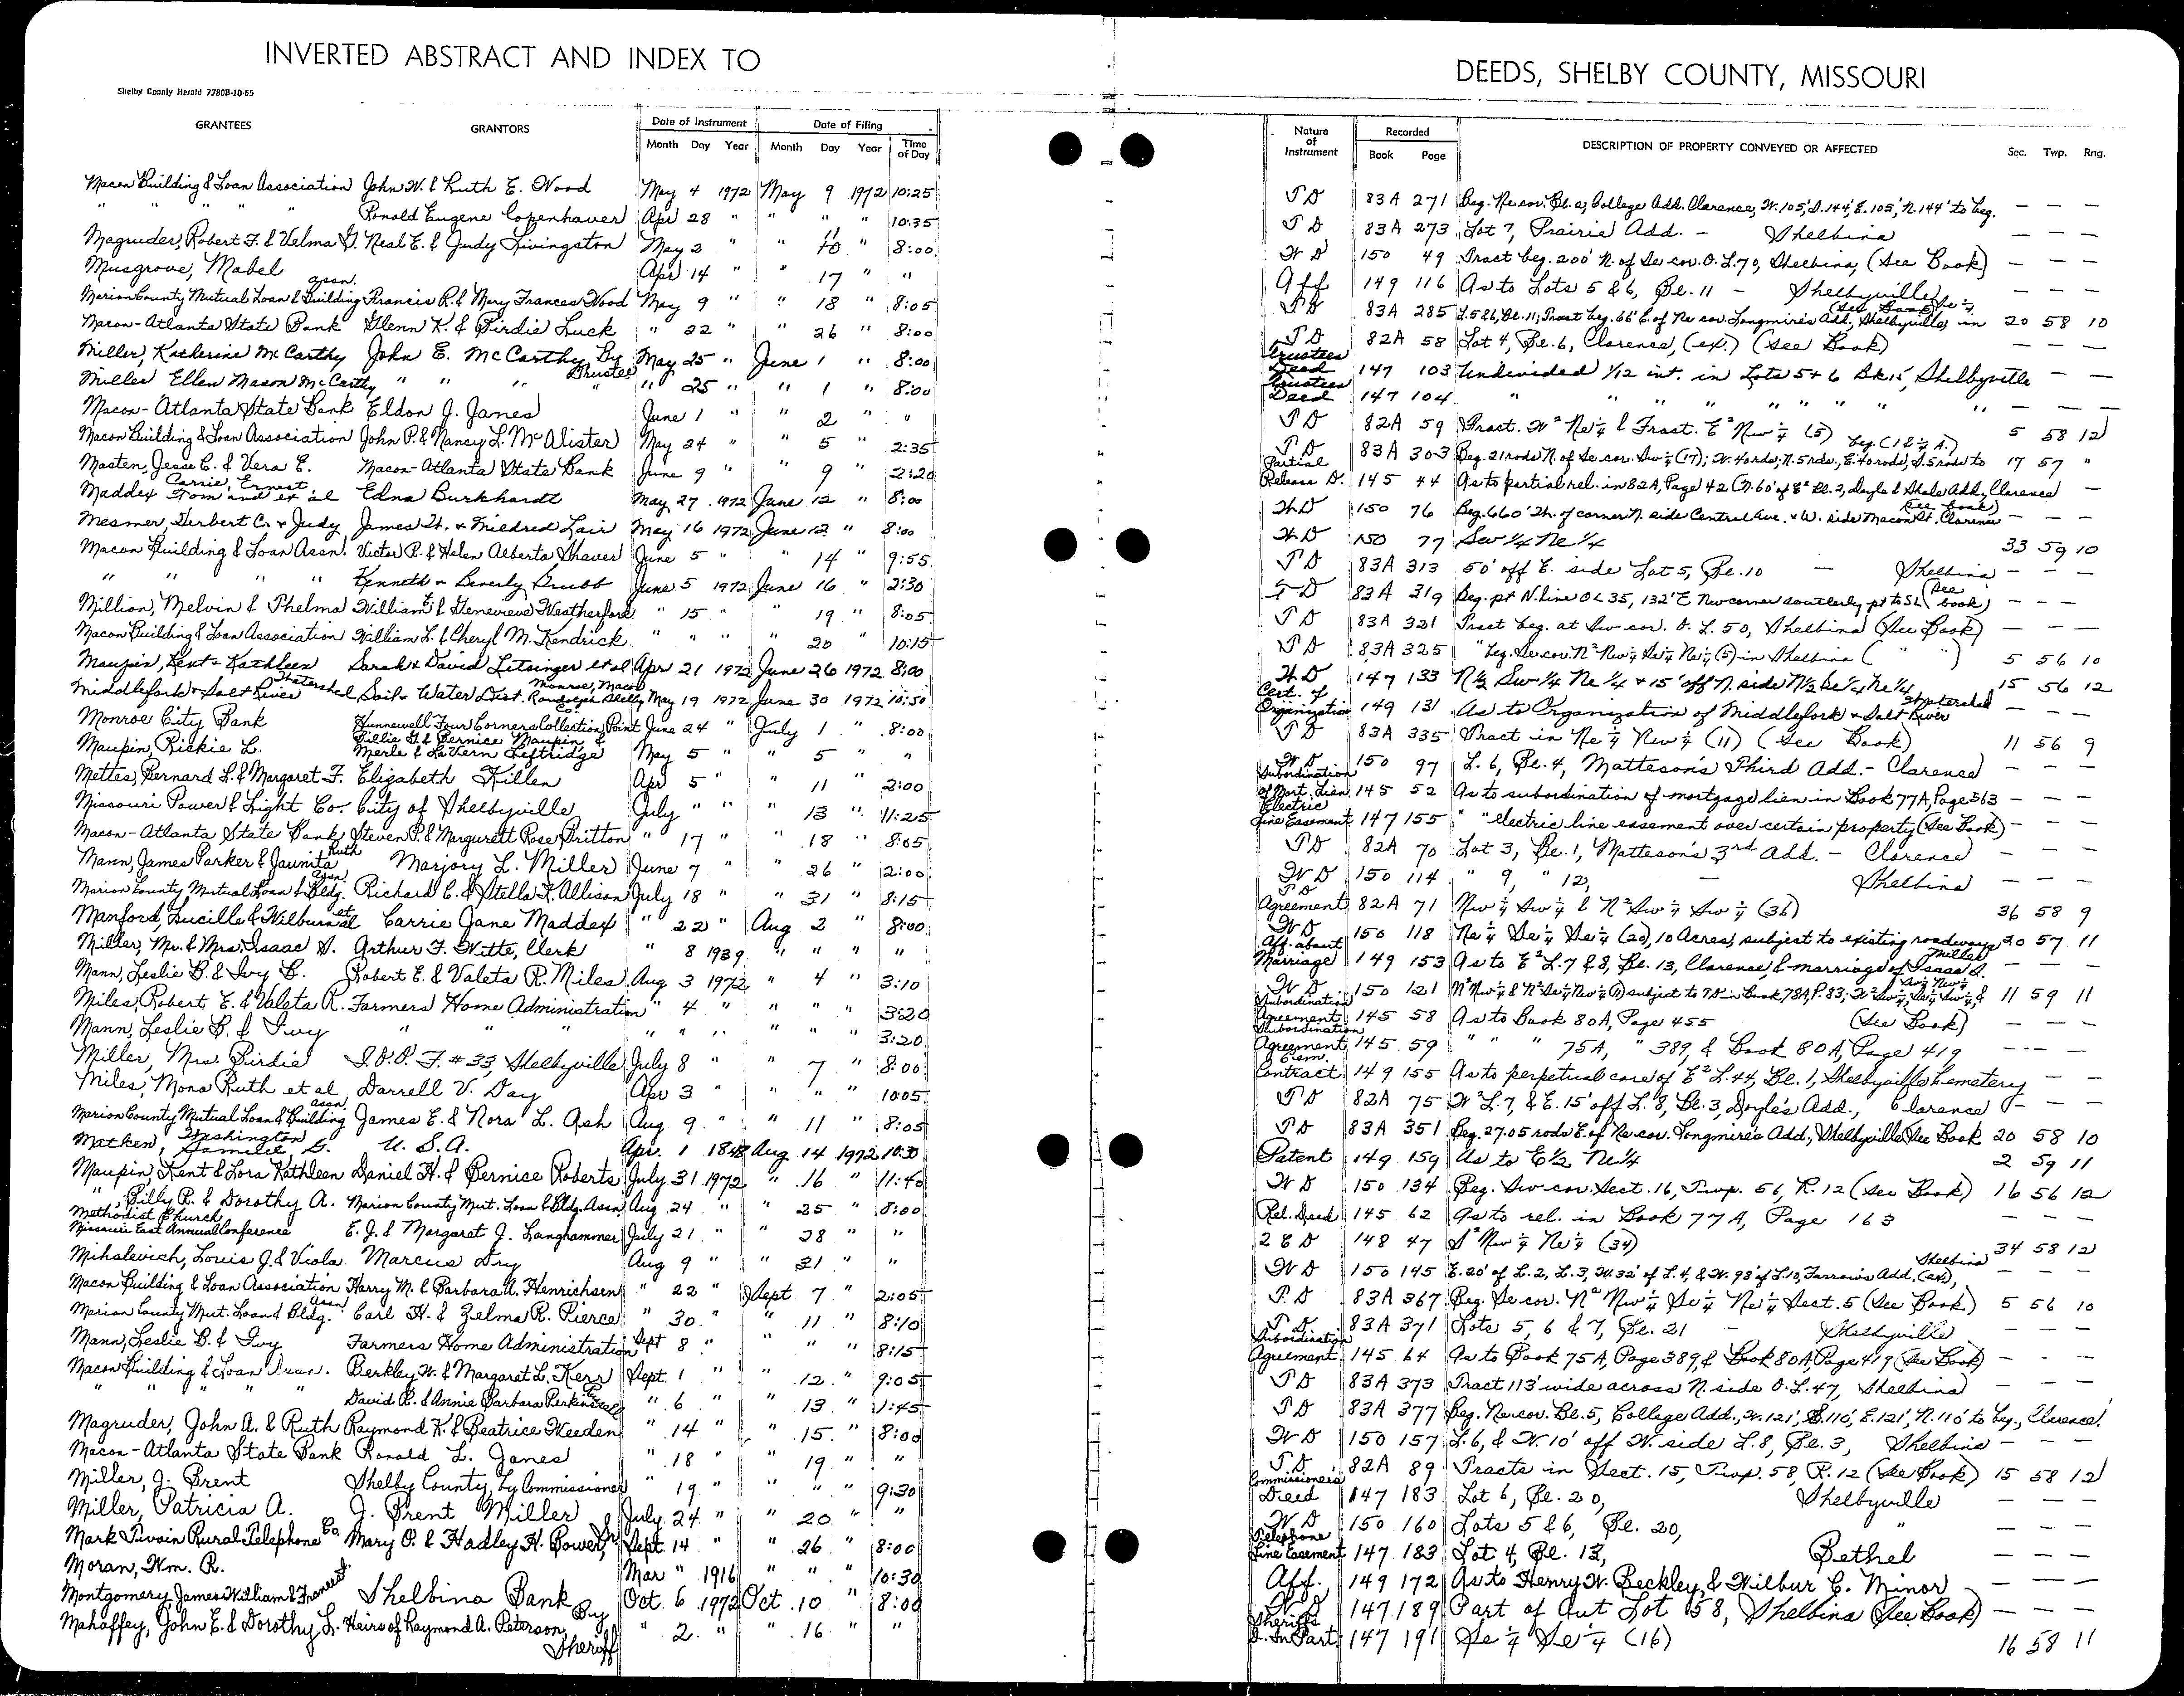 INVERTED ABSTRACT AND INDEX TO
DEEDS, SHELBY COUNTY, MISSOURI
Shelby County Herald 7780B-10-65
GRANTEES GRANTORS Date of Instrument Month Day Year Date of Filing Month Day Year Time of Day
Nature of Instrument Recorded Book Page DESCRIPTION OF PROPERTY CONVEYED OR AFFECTED Sec. Twp. Rng.
Macon Building & Loan Association John W. & Ruth E. Wood May 4 1972 May 9 1972 10:25
" " " " Ronald Eugene Copenhaver Apr 28 " " " " 10:35
Magruder, Robert F. & Velma G. Neal E. & Judy Livingston May 2 " " 11 " 8:00
Musgrove, Mabel Apr 14 " " 17 " "
Marion County Mutual Loan & Building Assn. Francis R. & Mary Frances Wood May 9 " " 18 " 8:05
Macon-Atlanta State Bank Glenn K. & Birdie Luck " 22 " " 26 " 8:00
Miller, Katherine McCarthy John E. McCarthy By Trustee May 25 " June 1 " 8:00
Miller Ellen Mason McCarthy " " " " 25 " " 1 " 8:00
Macon-Atlanta State Bank Eldon J. Janes June 1 " " 2 " "
Macon Building & Loan Association John P. & Nancy L. McAlister May 24 " " 5 " 2:35
Masten, Jesse C. & Vera E. Macon-Atlanta State Bank June 9 " " 9 " 2:20
Maddex Carrie, Ernest Tom and et al Edna Burkhardt May 27 1972 June 12 " 8:00
Mesmer, Herbert C. & Judy James H. & Mildred Lair May 16 1972 June 12 " 8:00
Macon Building & Loan Assn. Victor P. & Helen Alberta Shaver June 5 " " 14 " 9:55
" " " " Kenneth & Beverly Grubb June 5 1972 June 16 " 2:30
Million, Melvin & Thelma William E. & Genevieve Weatherford " 15 " " 19 " 8:05
Macon Building & Loan Association William L. & Cheryl M. Kendrick " " " " 20 10:15
Maupin, Kent & Kathleen Sarah & David Litsinger et al Apr 21 1972 June 26 1972 8:00
Middlefork & Salt River Watershed Soil & Water Dist. Monroe, Macon Randolph Shelby Co. May 19 1972 June 30 1972 10:50
Monroe City Bank Hunnewell Four Corners Collection Point June 24 " July 1 " 8:00
Maupin, Rickie L. Billie G. & Bernice Maupin & Merle & LaVern Leftridge May 5 " " 5 " "
Mettes, Bernard L. & Margaret F. Elizabeth Killen Apr 5 " " 11 " 2:00
Missouri Power & Light Co. City of Shelbyville July " " " 13 " 11:25
Macon-Atlanta State Bank Steven P. & Margurett Rose Britton " 17 " " 18 " 8:05
Mann, James Parker & Jaunita Ruth Marjory L. Miller June 7 " " 26 " 2:00
Marion County Mutual Loan & Bldg. Assn. Richard C. & Stella F. Allison July 18 " " 31 " 8:15
Manford, Lucille & Wilburn et al Carrie Jane Maddex " 22 " Aug. 2 " 8:00
Miller, Mr. & Mrs. Isaac S. Arthur F. Witte, Clerk " 8 1939 " " " "
Mann, Leslie B. & Ivy B. Robert E. & Valeta R. Miles Aug 3 1972 " 4 " 3:10
Miles, Robert E. & Valeta R. Farmers Home Administration " 4 " " " " 3:20
Mann, Leslie B. & Ivy " " " " " " " " " 3:20
Miller, Mrs. Birdie I.O.O.F. #33, Shelbyville July 8 " " 7 " 8:00
Miles, Mona Ruth et al Darrell V. Day Apr 3 " " " " 10:05
Marion County Mutual Loan & Building Assn. James E. & Nora L. Ash Aug. 9 " " 11 " 8:05
Washington U.S.A. Apr. 1 1848 Aug 14 1972 10:30
Maupin, Kent & Lora Kathleen Daniel H. & Bernice Roberts July 31 1972 " 16 " 11:40
" Billy R. & Dorothy A. Marion County Mut. Loan & Bldg. Assn Aug 24 " " 25 " 8:00
Methodist Church Missouri East Annual Conference E. J. & Margaret J. Langhammer July 21 " " 28 " "
Mihalevich, Louis J. & Viola Marcus Dry Aug 9 " " 31 " "
Macon Building & Loan Association Harry M. & Barbara A. Henrichsen " 22 " Sept 7 " 2:05
Marion County Mut. Loan & Bldg. Assn. Carl H. & Zelma R. Pierce " 30 " " 11 " 8:10
Mann, Leslie B. & Ivy Farmers Home Administration Sept 8 " " " " 8:15
Macon Building & Loan Assn. Berkley W. & Margaret L. Kerr Sept. 1 " " 12 " 9:05
" " " " David R. & Annie Barbara " 6 " " 13 " 1:45
Magruder, John A. & Ruth Raymond K. & Beatrice Weeden " 14 " " 15 " 8:00
Macon-Atlanta State Bank Ronald L. Janes " 18 " 19 " "
Miller, J. Brent Shelby County, by Commissioner " 19 " " " " 9:30
Miller, Patricia A. J. Brent Miller July 24 " " 20 " "
Mark Twain Rural Telephone Co. Mary O. & Hadley H. Bower, Jr. Sept. 14 " " 26 " 8:00
Moran, Wm. R. Mar " 1916 " " " 10:30
Montgomery, James William & Frances Shelbina Bank Oct. 6 1972 Oct. 10 " 8:00
Mahaffey, John E. & Dorothy L. Heirs of Raymond A. Peterson, By Sheriff " 2 " " 16 " "
T D 83A 271 Beg. Ne cor. Bl. a, College Add. Clarence, W. 105', S. 144', E. 105', N. 144' to beg. — — —
T D 83A 273 Lot 7, Prairie Add. - Shelbina — — —
W D 150 49 Tract beg. 200' N. of Se cor. O. L. 70, Shelbina, (See Book) — — —
Aff 149 116 As to Lots 5 & 6, Bl. 11 - Shelbyville — — —
T D 83A 285 L. 5 & 6, Bl. 11; Tract beg. 66' E. of Ne cor. Longmire's Add., Shelbyville, in (See Book) Se ¼ 20 58 10
T D 82A 58 Lot 4, Bl. 6, Clarence, (ex.) (See Book) — — —
Trustees Deed 147 103 Undivided 1/12 int. in Lots 5 & 6 Bk 15, Shelbyville — —
Trustees Deed 147 104 " " " " " " " " — — —
T D 82A 59 Fract. W² Ne¼ & Fract. E² Nw¼ (5) 5 58 12
T D 83A 303 Beg. 21 rods N. of Se cor. Sw¼ (17); W. 40 rds, N. 5 rds., E. 40 rods, S. 5 rods to beg. (1 & ¼ A.) 17 57 "
Partial Release D. 145 44 As to partial rel. in 82A, Page 42 (N. 60' of E² Bl. 2, Doyle & Shale Add., Clarence —
W D 150 76 Beg. 660' Th. of corner N. side Central Ave. & W. side Macon St. Clarence (See book) — — —
W D 150 77 Sw 1/4 Ne 1/4 33 59 10
T D 83A 313 50' off E. side Lot 5, Bl. 10 — Shelbina — — —
T D 83A 319 Beg. pt N. line OL 35, 132' E Nw corner southerly pt to SL (See book) — — —
T D 83A 321 Tract beg. at Sw cor. O. L. 50, Shelbina (See Book) — — —
T D 83A 325 " beg. Se cor. N² Nw¼ Se¼ Ne¼ (5) in Shelbina ( " " ) 5 56 10
W D 147 133 N ½ Sw 1/4 Ne 1/4 & 15' off N. side N 1/2 Se 1/4 Ne 1/4 15 56 12
Cert. of Organization 149 131 As to Organization of Middlefork & Salt River Watershed — — —
T D 83A 335 Tract in Ne ¼ Nw ¼ (11) (See Book) 11 56 9
W D 150 97 L. 6, Bl. 4, Matteson's Third Add. - Clarence — — —
Subordination of Mort. Lien 145 52 As to subordination of mortgage lien in Book 77A, Page 563 — — —
Electric Line Easement 147 155 " " electric line easement over certain property (See Book) — — —
T D 82A 70 Lot 3, Bl. 1, Matteson's 3rd Add. - Clarence — — —
W D 150 114 " 9, " 12, — Shelbina — — —
T D Agreement 82A 71 Nw ¼ Sw ¼ & N² Sw ¼ Sw ¼ (36) 36 58 9
W D 150 118 Ne ¼ Se ¼ Se ¼ (20), 10 Acres, subject to existing roadways 20 57 11
Aff. about Marriage 149 153 As to E² L. 7 & 8, Bl. 13, Clarence, & marriage of Isaac S. Miller — — —
W D 150 121 N² Nw¼ & N² Se¼ Nw¼ subject to TD in Book 78A, P. 83; 11 59 11
Subordination Agreement 145 58 As to Book 80A, Page 455 (See Book) — — —
Subordination Agreement 145 59 " " " 75A, " 389, & Book 80A, Page 419 — — —
Cem. Contract 149 155 As to perpetual care of E² L. 44, Bl. 1, Shelbyville Cemetery — —
T D 82A 75 W² L. 7, & E. 15' off L. 8, Bl. 3, Doyle's Add., Clarence — — —
T D 83A 351 Beg. 27.05 rods E. of Ne cor. Longmire's Add., Shelbyville See Book 20 58 10
Patent 149 159 As to E½ Ne¼ 2 59 11
W D 150 134 Beg. Sw cor. Sect. 16, Twp. 56, R. 12 (See Book) 16 56 12
Rel. Deed 145 62 As to rel. in Book 77A, Page 163 — — —
2 C D 148 47 S² Nw ¼ Ne ¼ (34) 34 58 12
W D 150 145 E. 20' of L. 2, L. 3, W. 32' of L. 4, & W. 98' of L. 10, Farrow's Add. (ex), Shelbina — — —
T D 83A 367 Beg. Se cor. N² Nw ¼ Se ¼ Ne ¼ Sect. 5 (See Book) 5 56 10
T D 83A 371 Lots 5, 6 & 7, Bl. 21 - Shelbyville — —
Subordination Agreement 145 64 As to Book 75A, Page 389, & Book 80A, Page 419 (See Book) — — —
T D 83A 373 Tract 113' wide across N. side O. L. 47, Shelbina — — —
T D 83A 377 Beg. Ne cor. Bl. 5, College Add., W. 121', S. 110', E. 121', N. 110' to beg., Clarence.
W D 150 157 L. 6, & W. 10' off W. side L. 8, Bl. 3, Shelbina — — —
T D 82A 89 Tracts in Sect. 15, Twp. 58, R. 12 (See Book) 15 58 12
Commissioners Deed 147 183 Lot 6, Bl. 20, Shelbyville — — —
W D 150 160 Lots 5 & 6, Bl. 20, " — — —
Telephone Line Easement 147 183 Lot 4, Bl. 13, Bethel — — —
Aff. 149 172 As to Henry W. Beckley, & Wilbur C. Minor — — —
W D 147 189 Part of Out Lot 158, Shelbina (See Book) — — —
Sheriffs D. In Part 147 191 Se ¼ Se ¼ (16) 16 58 11